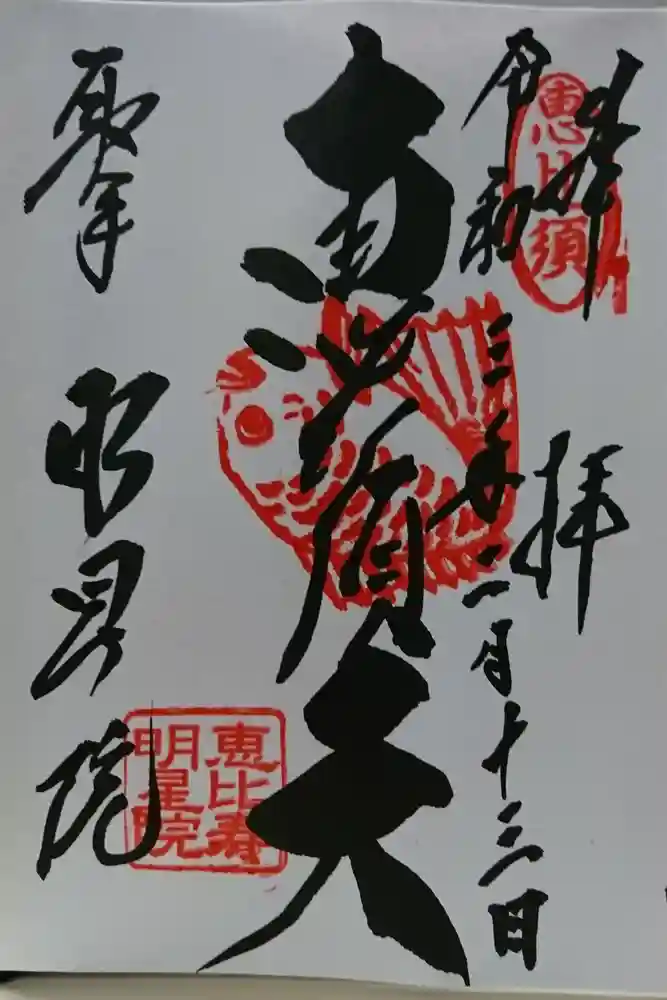 奉拝
恵比須
令和三年二月十三日
恵比須天
取手 明星院
恵比寿
明星院